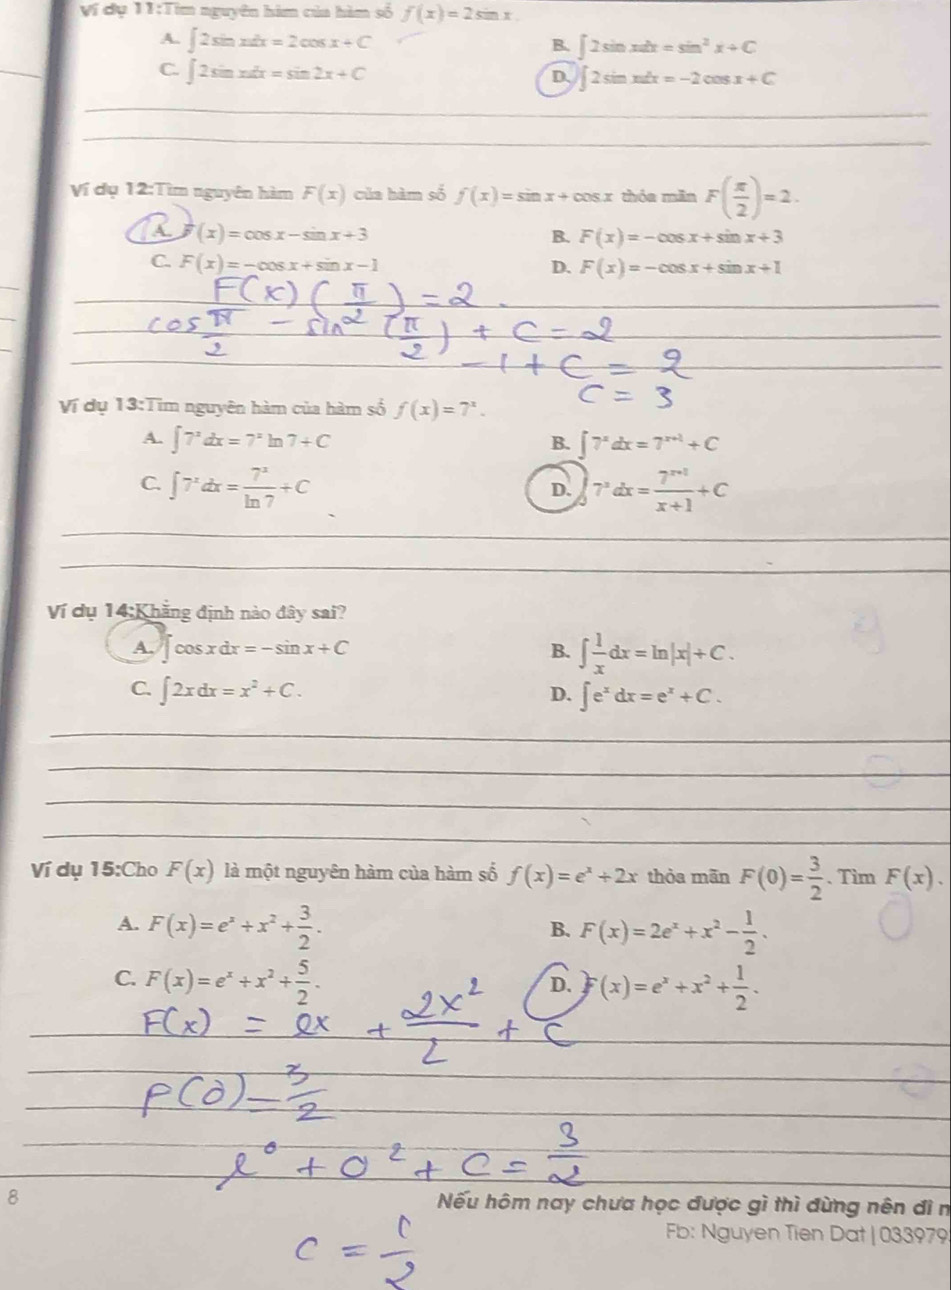 Ví dụ 11:Tìm nguyên hàm của hàm số f(x)=2sin x.
A. ∫2sin xdx = 2cos x + C
B. ∫2sin xdx = sin² x + C
C. ∫2sin xdx = sin 2x + C
D. ∫2sin xdx = -2cos x + C
Ví dụ 12:Tìm nguyên hàm F(x) của hàm số f(x)=sin x+cos x thỏa mãn F(π/2)=2.
A. F(x)=cos x-sin x+3
B. F(x)=-cos x+sin x+3
C. F(x)=-cos x+sin x-1
D. F(x)=-cos x+sin x+1
F(x) (π/2) = 2.
cos π/2 - sin (π/2) + C = 2
-1 + C = 2
C = 3
Ví dụ 13:Tìm nguyên hàm của hàm số f(x)=7ˣ.
A. ∫7ˣ dx = 7ˣ ln 7 + C
B. ∫7ˣ dx = 7ˣ⁺¹ + C
C. ∫7ˣ dx = 7ˣ/ln 7 + C
D. ∫7ˣ dx = 7ˣ⁺¹/(x+1) + C
Ví dụ 14:Khẳng định nào đây sai?
A. ∫cos x dx = -sin x + C
B. ∫1/x dx = ln|x| + C.
C. ∫2x dx = x² + C.
D. ∫eˣ dx = eˣ + C.
Ví dụ 15:Cho F(x) là một nguyên hàm của hàm số f(x)=eˣ+2x thỏa mãn F(0)=3/2. Tìm F(x).
A. F(x)=eˣ+x²+3/2.
B. F(x)=2eˣ+x²-1/2.
C. F(x)=eˣ+x²+5/2.
D. F(x)=eˣ+x²+1/2.
F(x) = ex + 2x²/2 + C
F(0) = 3/2
e⁰ + 0² + C = 3/2
8
Nếu hôm nay chưa học được gì thì đừng nên đi n
Fb: Nguyen Tien Dat | 033979
C = 1/2